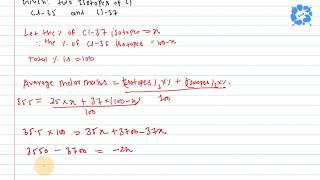 Given two isotopes of Cl
Cl-35 and Cl-37
Let the % of Cl-37 isotope = x
∴ the % of Cl-35 isotopes = 100-x
Total % is = 100
Average molar mass = (Isotopes)₁ x % + (Isotopes)₂ x %
100
35.5 = 35 x x + 37 x (100-x)
100
35.5 x 100 = 35x + 3700 - 37x
3550 - 3700 = -2x